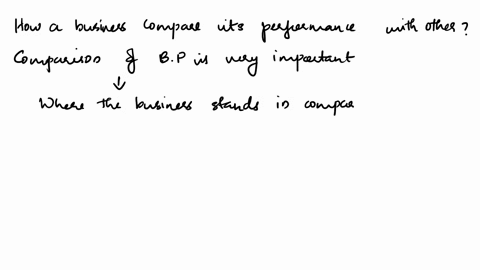 How a business compare its performance with other?
Comparison of B.P is very important
↓
Where the business stands in compare